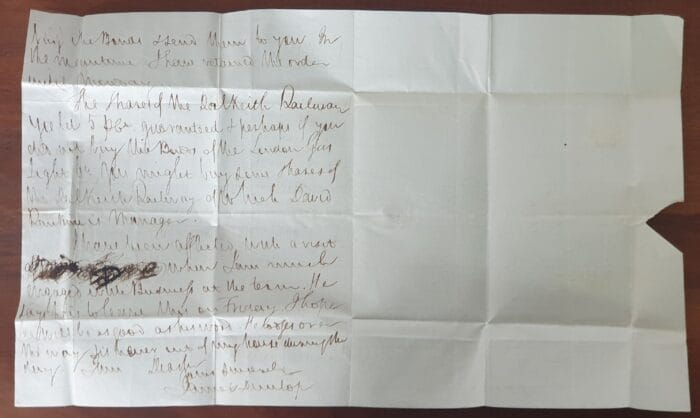 the Bonds & send them to you. In
the meantime I have retained the order
until Monday
The Shares of the Dalkeith Railway
yield 5 pCt guaranteed & perhaps if you
did not buy the Bonds of the London Gas
Light Co. you might buy some shares of
the Dalkeith Railway of which David
Rankine is Manager.
I have been afflicted with a visit
when I am much
engaged with Business at the term. He
says he is to leave this on Friday. I hope
he will be as good as his word. He
the way is never out of my house during the
day. I am Dear
Yours sincerely
James Dunlop